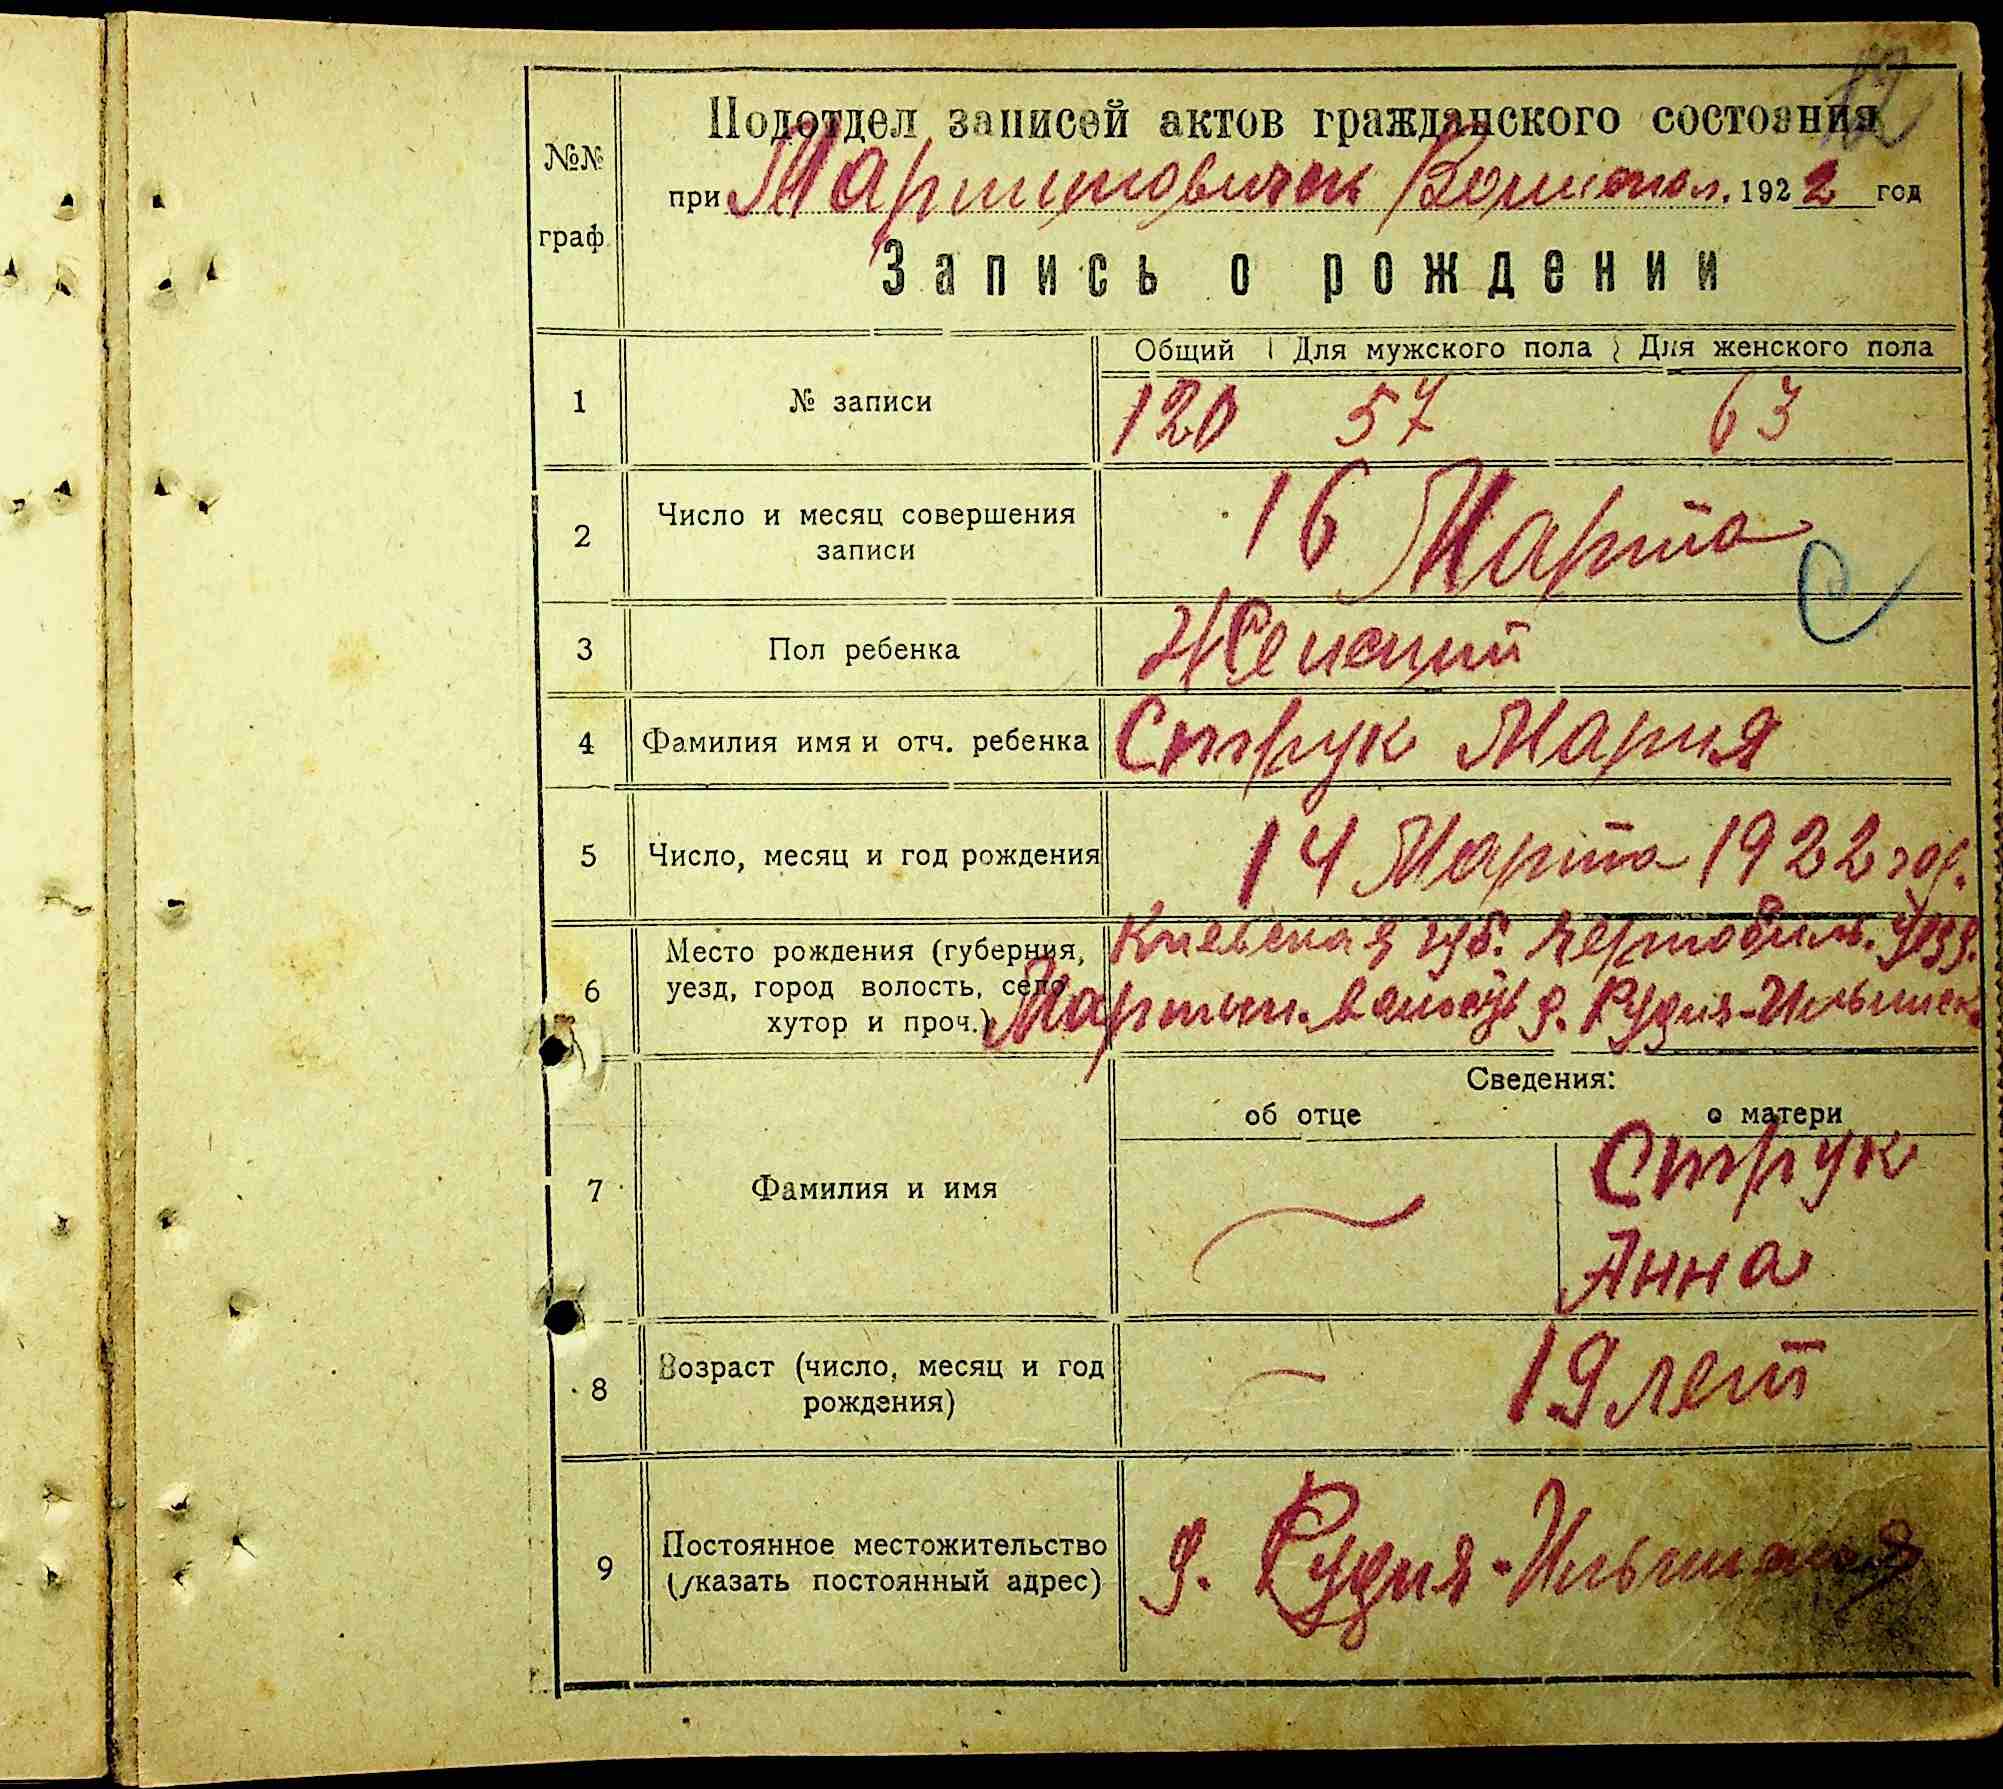 12
№№ граф.
Подотдел записей актов гражданского состояния
при Мартиновичск Волиспол. 1922 год
Запись о рождении
Общий Для мужского пола Для женского пола
1 № записи 120 57 63
2 Число и месяц совершения
записи
16 Марта
3 Пол ребенка Женский
4 Фамилия имя и отч. ребенка Струк Мария
5 Число, месяц и год рождения 14 Марта 1922 год.
6 Место рождения (губерния,
уезд, город волость, село
хутор и проч.)
Киевская губ. Чернобиль. Уезд.
Мартын. волость д. Рудня-Ильинск.
Сведения:
об отце о матери
7 Фамилия и имя
Струк
Анна
8 Возраст (число, месяц и год
рождения)
19 лет
9 Постоянное местожительство
(указать постоянный адрес)
д. Рудня-Ильинская